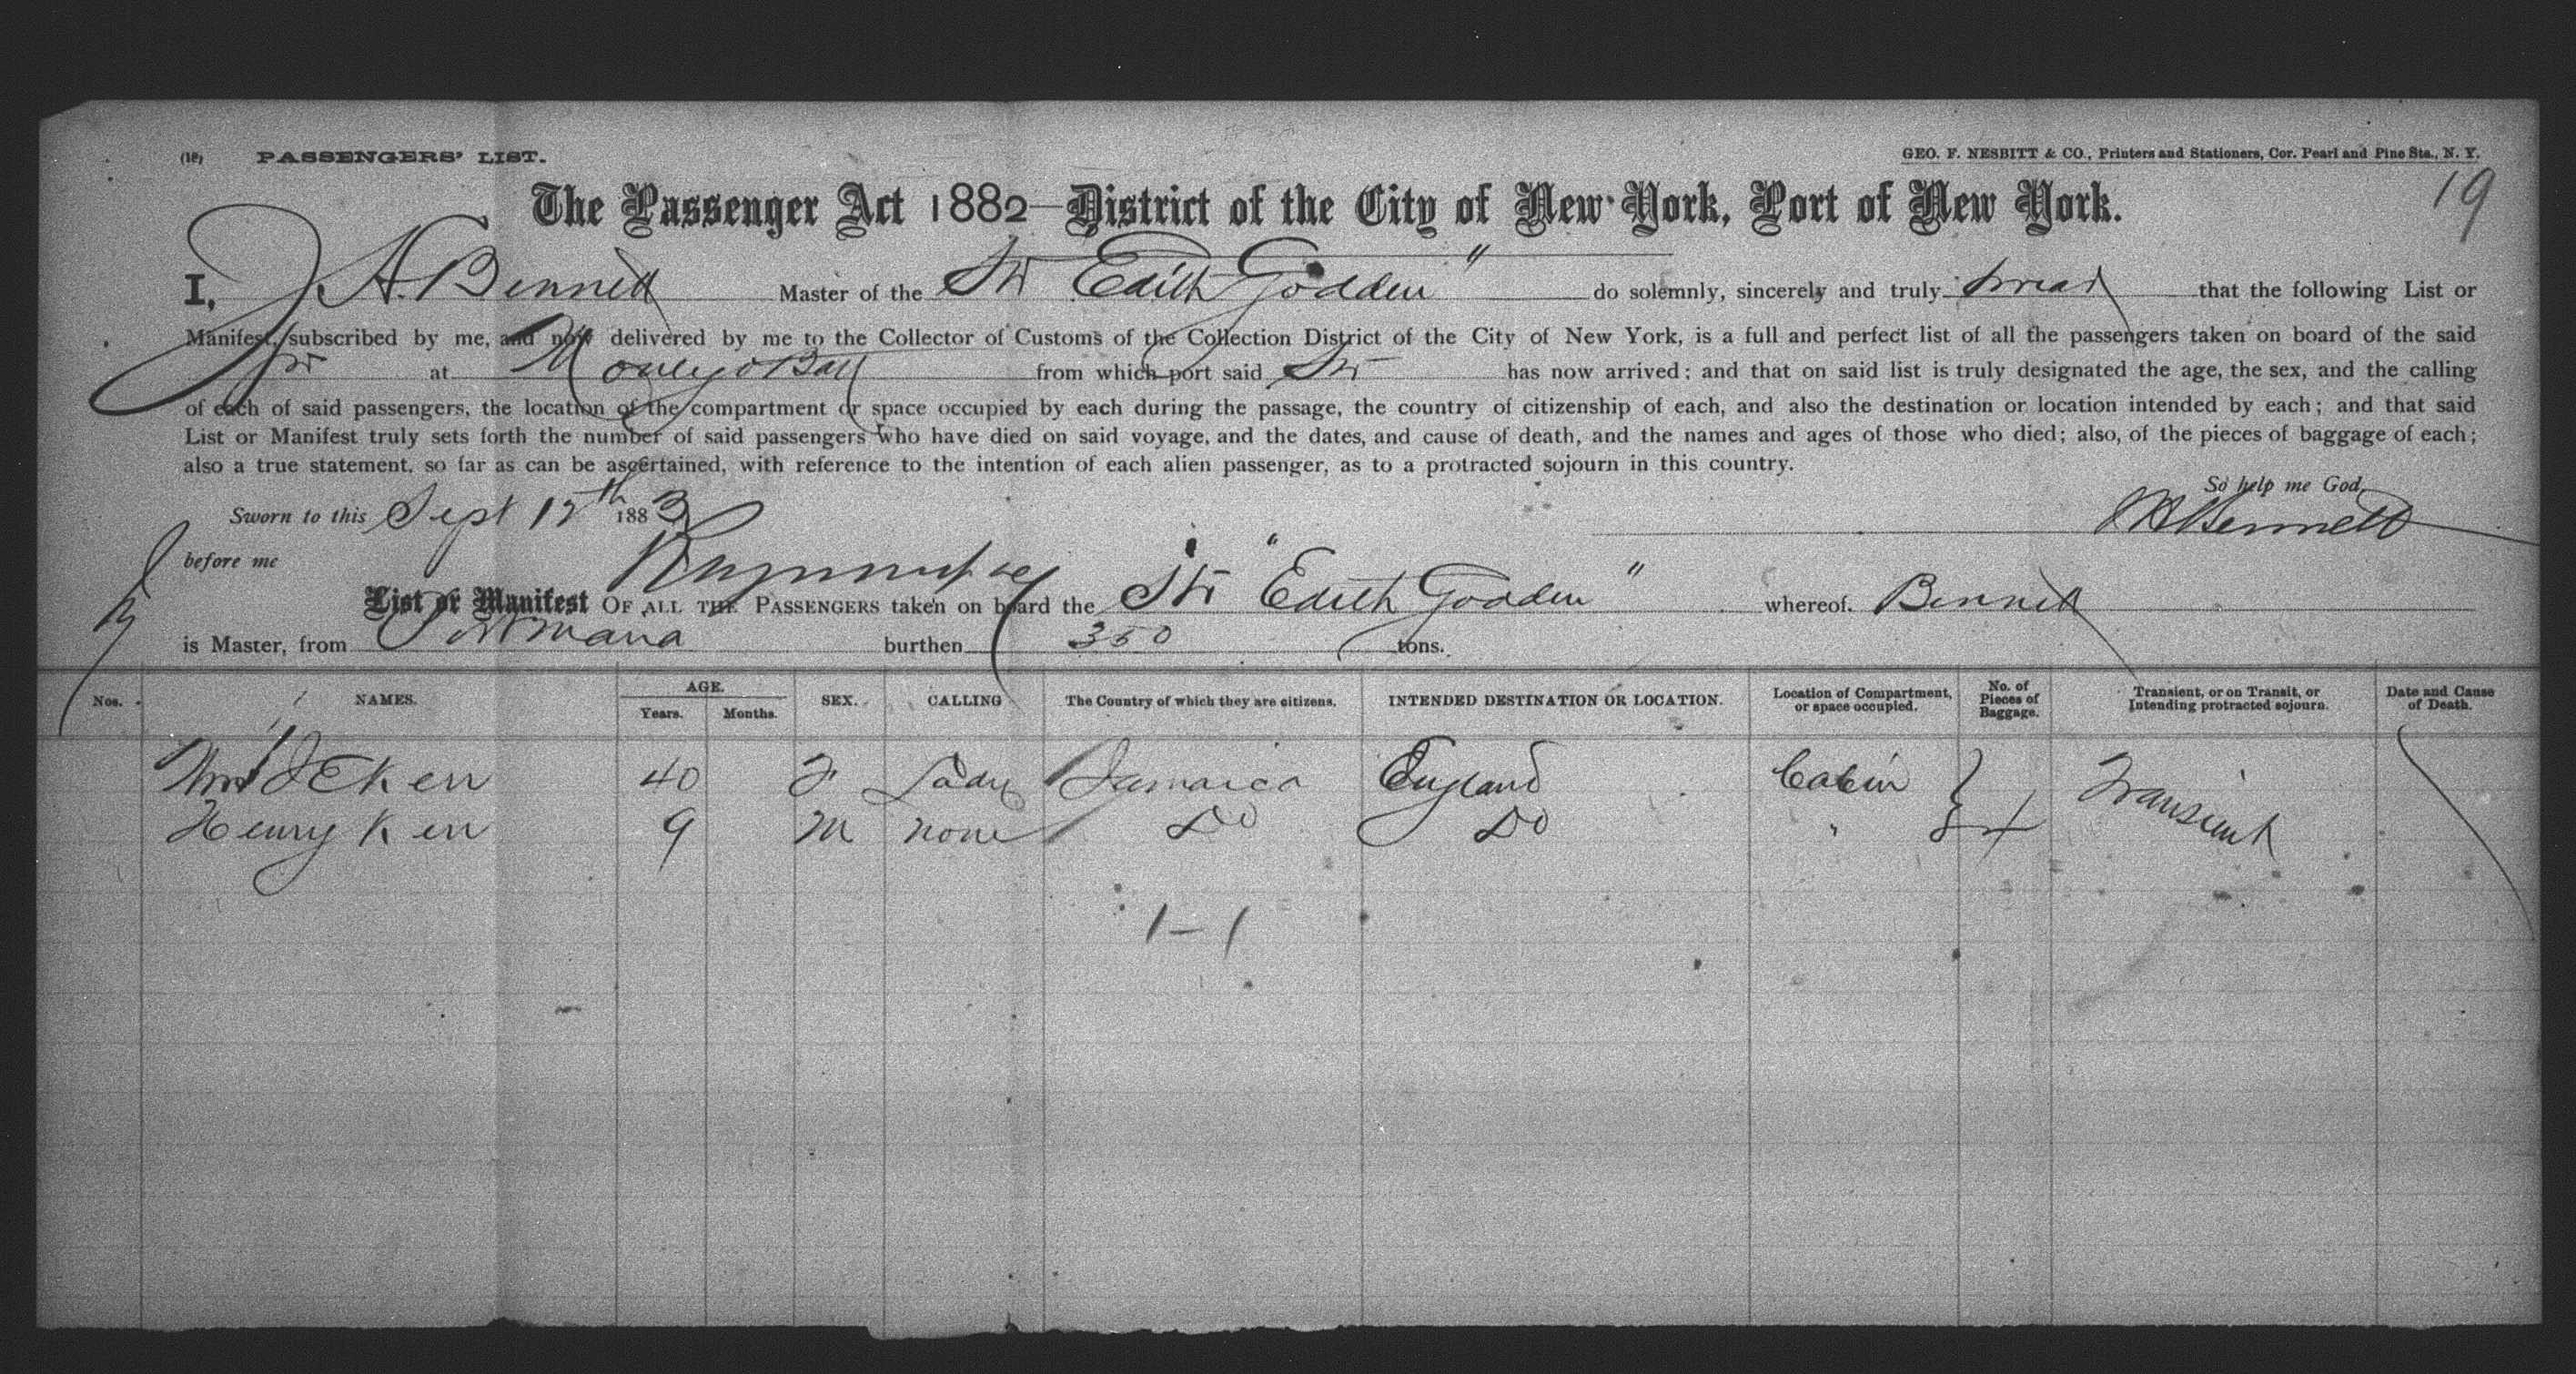 (18) PASSENGERS' LIST. GEO. F. NESBITT & CO., Printers and Stationers, Cor. Pearl and Pine Sts., N. Y.
19
The Passenger Act 1882—District of the City of New York, Port of New York.
I, J. A. Bennett Master of the Str "Edith Godden" do solemnly, sincerely and truly swear that the following List or
Manifest, subscribed by me, and now delivered by me to the Collector of Customs of the Collection District of the City of New York, is a full and perfect list of all the passengers taken on board of the said
Str at Montego Bay from which port said Str has now arrived; and that on said list is truly designated the age, the sex, and the calling
of each of said passengers, the location of the compartment or space occupied by each during the passage, the country of citizenship of each, and also the destination or location intended by each; and that said
List or Manifest truly sets forth the number of said passengers who have died on said voyage, and the dates, and cause of death, and the names and ages of those who died; also, of the pieces of baggage of each;
also a true statement, so far as can be ascertained, with reference to the intention of each alien passenger, as to a protracted sojourn in this country.
So help me God.
Sworn to this Sept 1883 Bennett
before me
List or Manifest OF ALL THE PASSENGERS taken on board the Str "Edith Godden" whereof, Bennett
is Master, from burthen 350 tons.
Nos. NAMES. AGE. Years. Months. SEX. CALLING The Country of which they are citizens. INTENDED DESTINATION OR LOCATION. Location of Compartment, or space occupied. No. of Pieces of Baggage. Transient, or on Transit, or Intending protracted sojourn. Date and Cause of Death.
Mrs J E Kerr 40 F Lady Jamaica England Cabin Transient
Henry Kerr 9 M none Do Do " 4
1 - 1